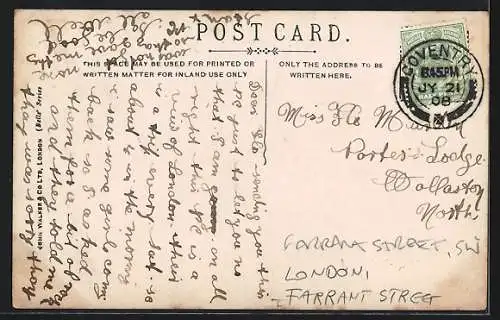 POST CARD.
THIS SPACE MAY BE USED FOR PRINTED OR
WRITTEN MATTER FOR INLAND USE ONLY
ONLY THE ADDRESS TO BE
WRITTEN HERE.
COVENTRY
8.45PM
JY 21
08
JOHN WALKER & CO LTD, LONDON (Bells' Series
Dear Flo sending you this
PC just to let you no
that I am on all
right this PC is a
view of London. their
is a trip every Sat. is
about 12 in the morning
I saw some girls coming
back so I asked
them for a bit of rock
and they told me
they was sorry they
Miss Flo
Porters Lodge
Wollaston
North.
FARRANT STREET, SW
LONDON,
FARRANT STREET